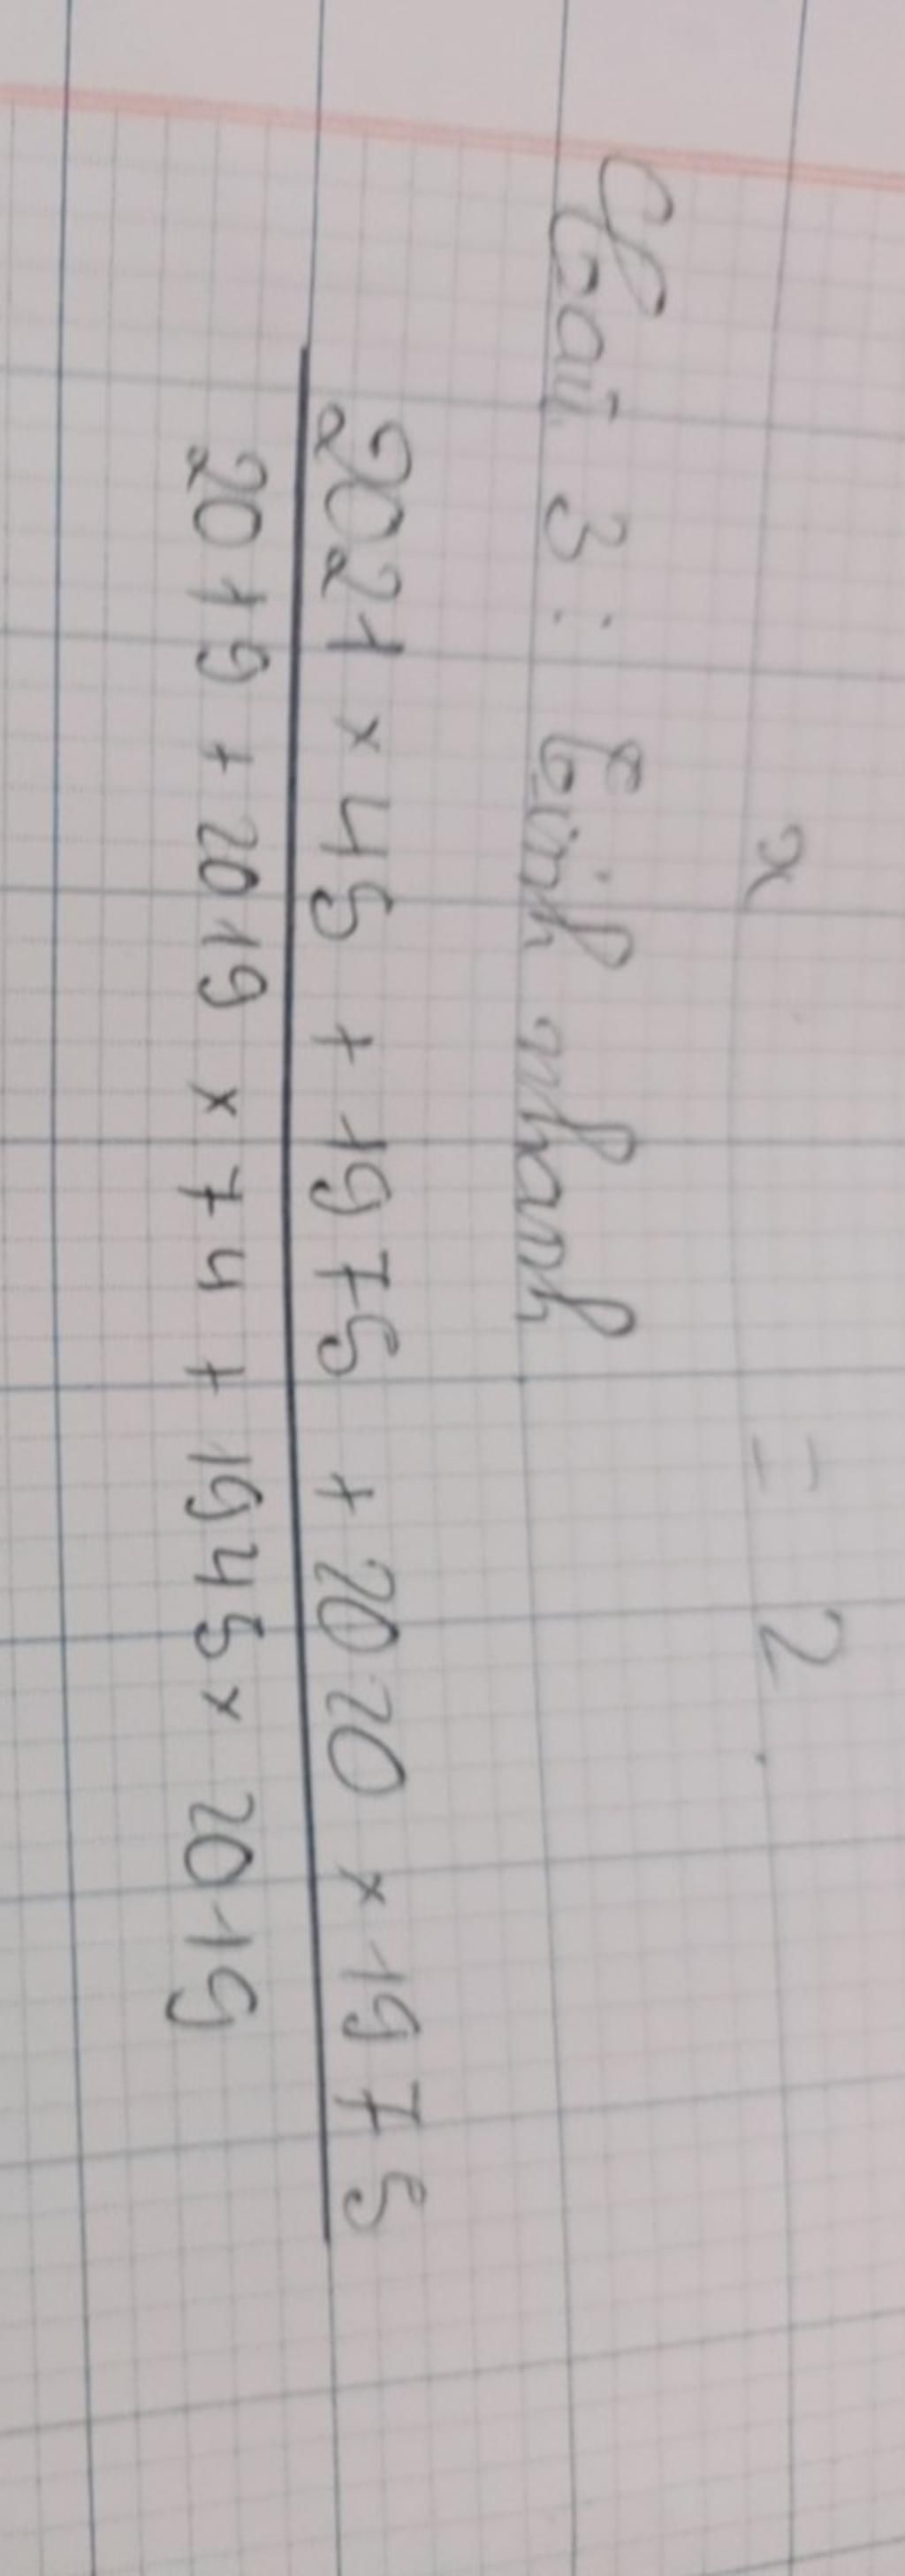 x = 2.
Bài 3: Tính nhanh
2021 x 45 + 1975 + 2020 x 1975
2019 + 2019 x 74 + 1945 x 2019